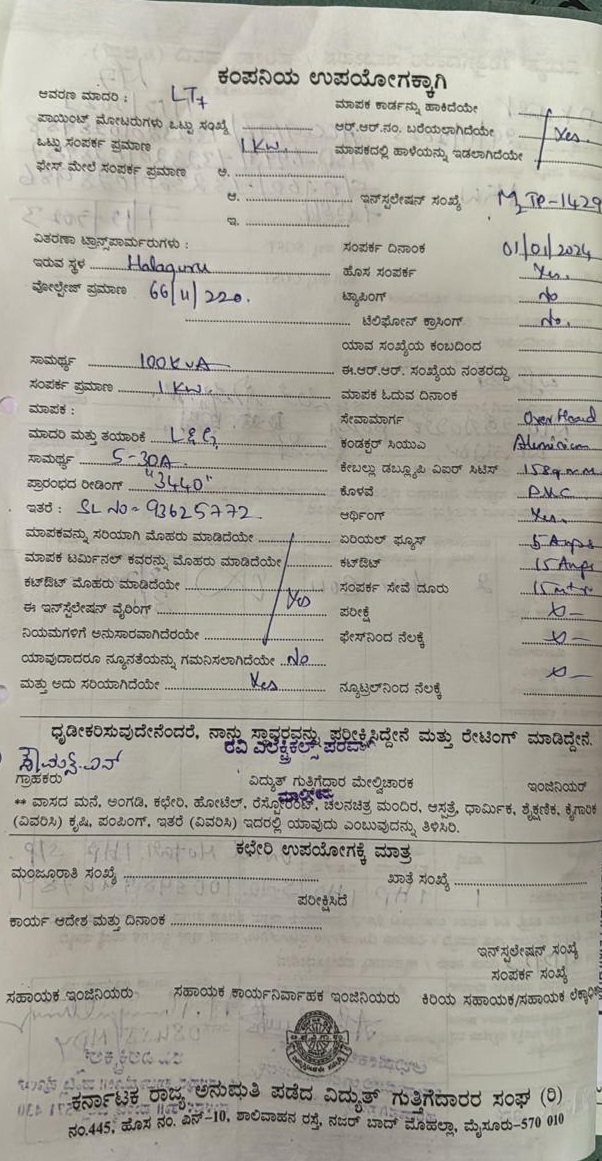 ಕಂಪನಿಯ ಉಪಯೋಗಕ್ಕಾಗಿ
ಆವರಣ ಮಾದರಿ : LT7 ಮಾಪಕ ಕಾರ್ಡನ್ನು ಹಾಕಿದೆಯೇ
ಪಾಯಿಂಟ್ ಮೋಟರುಗಳು ಒಟ್ಟು ಸಂಖ್ಯೆ ಆರ್.ಆರ್.ನಂ. ಬರೆಯಲಾಗಿದೆಯೇ Yes.
ಒಟ್ಟು ಸಂಪರ್ಕ ಪ್ರಮಾಣ 1 KW. ಮಾಪಕದಲ್ಲಿ ಹಾಳೆಯನ್ನು ಇಡಲಾಗಿದೆಯೇ
ಫೇಸ್ ಮೇಲೆ ಸಂಪರ್ಕ ಪ್ರಮಾಣ ಅ.
ಆ. ಇನ್‌ಸ್ಟಲೇಷನ್ ಸಂಖ್ಯೆ TP-1429
ಇ.
ವಿತರಣಾ ಟ್ರಾನ್ಸ್‌ಪಾರ್ಮರುಗಳು : ಸಂಪರ್ಕ ದಿನಾಂಕ 01/01/2024
ಇರುವ ಸ್ಥಳ Halaguru ಹೊಸ ಸಂಪರ್ಕ Yes.
ವೋಲ್ಟೇಜ್ ಪ್ರಮಾಣ 66/11/220. ಟ್ಯಾಪಿಂಗ್ No
ಟೆಲಿಫೋನ್ ಕ್ರಾಸಿಂಗ್ No.
ಯಾವ ಸಂಖ್ಯೆಯ ಕಂಬದಿಂದ
ಸಾಮರ್ಥ್ಯ 100KVA ಈ.ಆರ್.ಆರ್. ಸಂಖ್ಯೆಯ ನಂತರದ್ದು
ಸಂಪರ್ಕ ಪ್ರಮಾಣ 1 KW. ಮಾಪಕ ಓದುವ ದಿನಾಂಕ
ಮಾಪಕ : ಸೇವಾಮಾರ್ಗ Over Head
ಮಾದರಿ ಮತ್ತು ತಯಾರಿಕೆ L&G ಕಂಡಕ್ಟರ್ ಸಿಯುಎ
ಸಾಮರ್ಥ್ಯ 5-30A. ಕೇಬಲ್ಲು ಡಬ್ಲ್ಯೂಪಿ ಎಐರ್ ಸಿಟಿಸ್
ಪ್ರಾರಂಭದ ರೀಡಿಂಗ್ "3440" ಕೊಳವೆ PVC
ಇತರೆ : SL No- 93625772 ಆರ್ಥಿಂಗ್ Yes.
ಮಾಪಕವನ್ನು ಸರಿಯಾಗಿ ಮೊಹರು ಮಾಡಿದೆಯೇ ಏರಿಯಲ್ ಫ್ಯೂಸ್ 5 Amps
ಮಾಪಕ ಟರ್ಮಿನಲ್ ಕವರನ್ನು ಮೊಹರು ಮಾಡಿದೆಯೇ ಕಟ್‌ಔಟ್ 15 Amps
ಕಟ್‌ಔಟ್ ಮೊಹರು ಮಾಡಿದೆಯೇ Yes ಸಂಪರ್ಕ ಸೇವೆ ದೂರು 15 mtr
ಈ ಇನ್‌ಸ್ಟೆಲೇಷನ್ ವೈರಿಂಗ್ ಪರೀಕ್ಷೆ
ನಿಯಮಗಳಿಗೆ ಅನುಸಾರವಾಗಿದೆರಯೇ ಫೇಸ್‌ನಿಂದ ನೆಲಕ್ಕೆ
ಯಾವುದಾದರೂ ನ್ಯೂನತೆಯನ್ನು ಗಮನಿಸಲಾಗಿದೆಯೇ No
ಮತ್ತು ಅದು ಸರಿಯಾಗಿದೆಯೇ Yes ನ್ಯೂಟ್ರಲ್‌ನಿಂದ ನೆಲಕ್ಕೆ
ಧೃಡೀಕರಿಸುವುದೇನೆಂದರೆ, ನಾನು ಸ್ಥಾವರವನ್ನು ಪರೀಕ್ಷಿಸಿದ್ದೇನೆ ಮತ್ತು ರೇಟಿಂಗ್ ಮಾಡಿದ್ದೇನೆ.
ರವಿ ಎಲೆಕ್ಟ್ರಿಕಲ್ಸ್
ಗ್ರಾಹಕರು ವಿದ್ಯುತ್ ಗುತ್ತಿಗೆದಾರ ಮೇಲ್ವಿಚಾರಕ ಇಂಜಿನಿಯರ್
** ವಾಸದ ಮನೆ, ಅಂಗಡಿ, ಕಛೇರಿ, ಹೋಟೆಲ್, ರೆಸ್ಟೋರೆಂಟ್, ಚಲನಚಿತ್ರ ಮಂದಿರ, ಆಸ್ಪತ್ರೆ, ಧಾರ್ಮಿಕ, ಶೈಕ್ಷಣಿಕ, ಕೈಗಾರಿಕ
(ವಿವರಿಸಿ) ಕೃಷಿ, ಪಂಪಿಂಗ್, ಇತರೆ (ವಿವರಿಸಿ) ಇದರಲ್ಲಿ ಯಾವುದು ಎಂಬುವುದನ್ನು ತಿಳಿಸಿರಿ.
ಕಛೇರಿ ಉಪಯೋಗಕ್ಕೆ ಮಾತ್ರ
ಮಂಜೂರಾತಿ ಸಂಖ್ಯೆ ಖಾತೆ ಸಂಖ್ಯೆ
ಪರೀಕ್ಷಿಸಿದೆ
ಕಾರ್ಯ ಆದೇಶ ಮತ್ತು ದಿನಾಂಕ
ಇನ್‌ಸ್ಟಲೇಷನ್ ಸಂಖ್ಯೆ
ಸಂಪರ್ಕ ಸಂಖ್ಯೆ
ಸಹಾಯಕ ಇಂಜಿನಿಯರು ಸಹಾಯಕ ಕಾರ್ಯನಿರ್ವಾಹಕ ಇಂಜಿನಿಯರು ಕಿರಿಯ ಸಹಾಯಕ/ಸಹಾಯಕ
ಕರ್ನಾಟಕ ರಾಜ್ಯ ಅನುಮತಿ ಪಡೆದ ವಿದ್ಯುತ್ ಗುತ್ತಿಗೆದಾರರ ಸಂಘ (ರಿ)
ನಂ.445, ಹೊಸ ನಂ. ಎನ್-10, ಶಾಲಿವಾಹನ ರಸ್ತೆ, ನಜರ್ ಬಾದ್ ಮೊಹಲ್ಲಾ, ಮೈಸೂರು-570 010